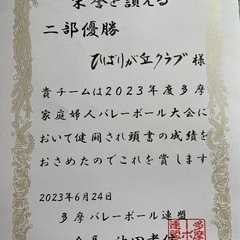 栄誉を讃える
二部優勝
ひばりが丘クラブ 様
貴チームは2023年度多摩
家庭婦人バレーボール大会に
おいて健闘され頭書の成績を
おさめたのでこれを賞します
2023年6月24日
多摩バレーボール連盟